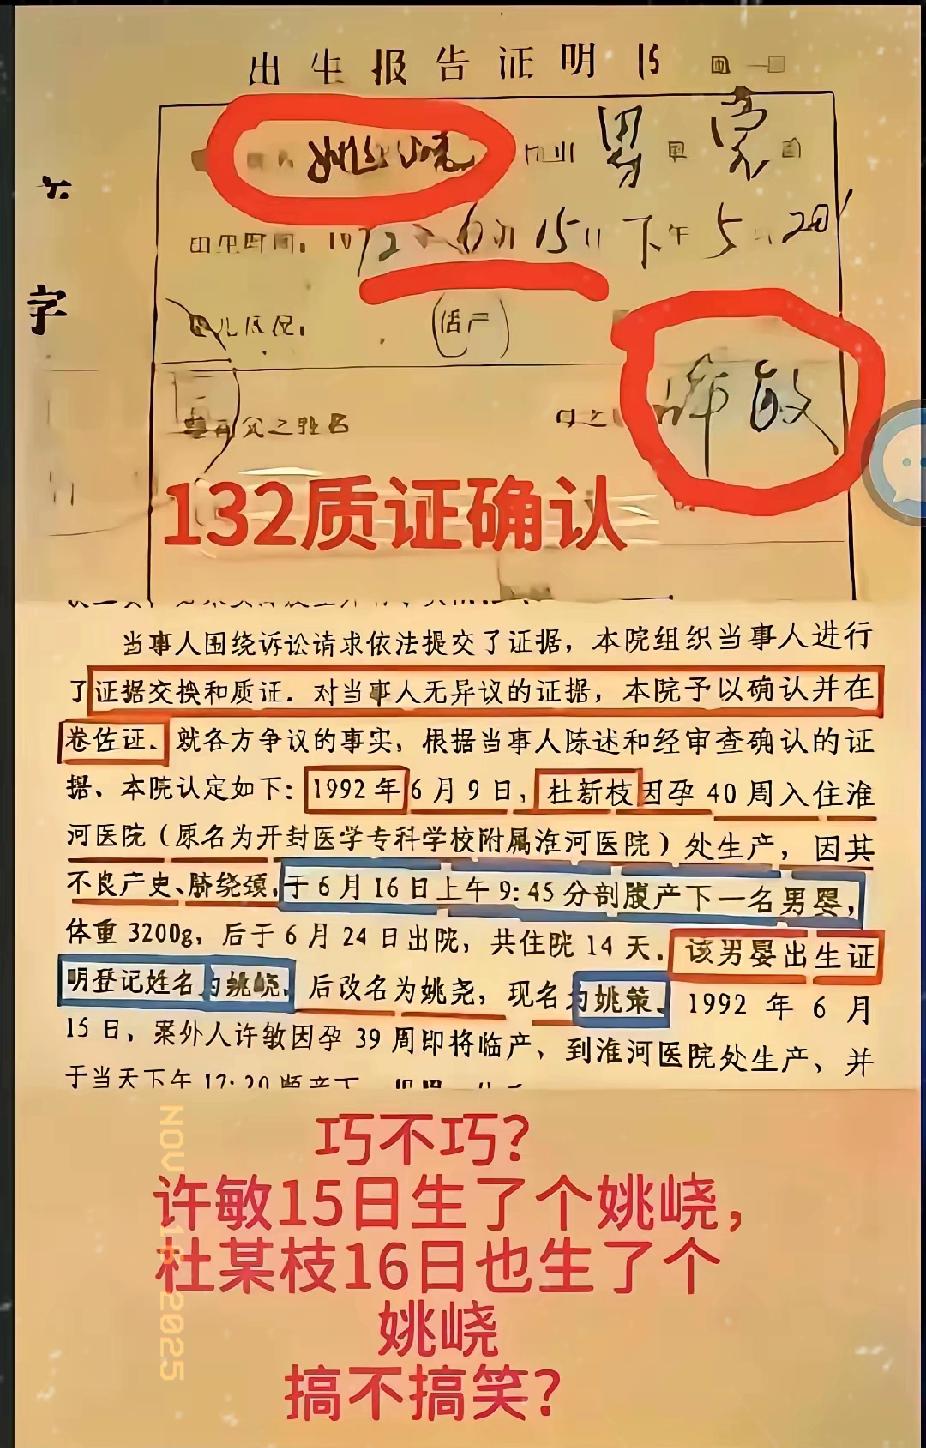 出生报告证明书
姚峣 男
字
出生时间：1972年6月15日下午5时20'
婴儿状况： 活产
婴儿父之姓名 母之 许敏
132质证确认
当事人围绕诉讼请求依法提交了证据，本院组织当事人进行
了证据交换和质证．对当事人无异议的证据，本院予以确认并在
卷佐证．就各方争议的事实，根据当事人陈述和经审查确认的证
据、本院认定如下：1992年6月9日，杜新枝因孕40周入住淮
河医院（原名为开封医学专科学校附属淮河医院）处生产，因其
不良产史、脐绕颈，于6月16日上午9:45分剖腹产下一名男婴，
体重3200g，后于6月24日出院，共住院14天．该男婴出生证
明登记姓名为姚峣，后改名为姚尧，现名为姚策．1992年6月
15日，案外人许敏因孕39周即将临产、到淮河医院处生产、并
于当天下午17:20顺产下
巧不巧？
许敏15日生了个姚峣，
杜某枝16日也生了个
姚峣
搞不搞笑？
NOV 2025